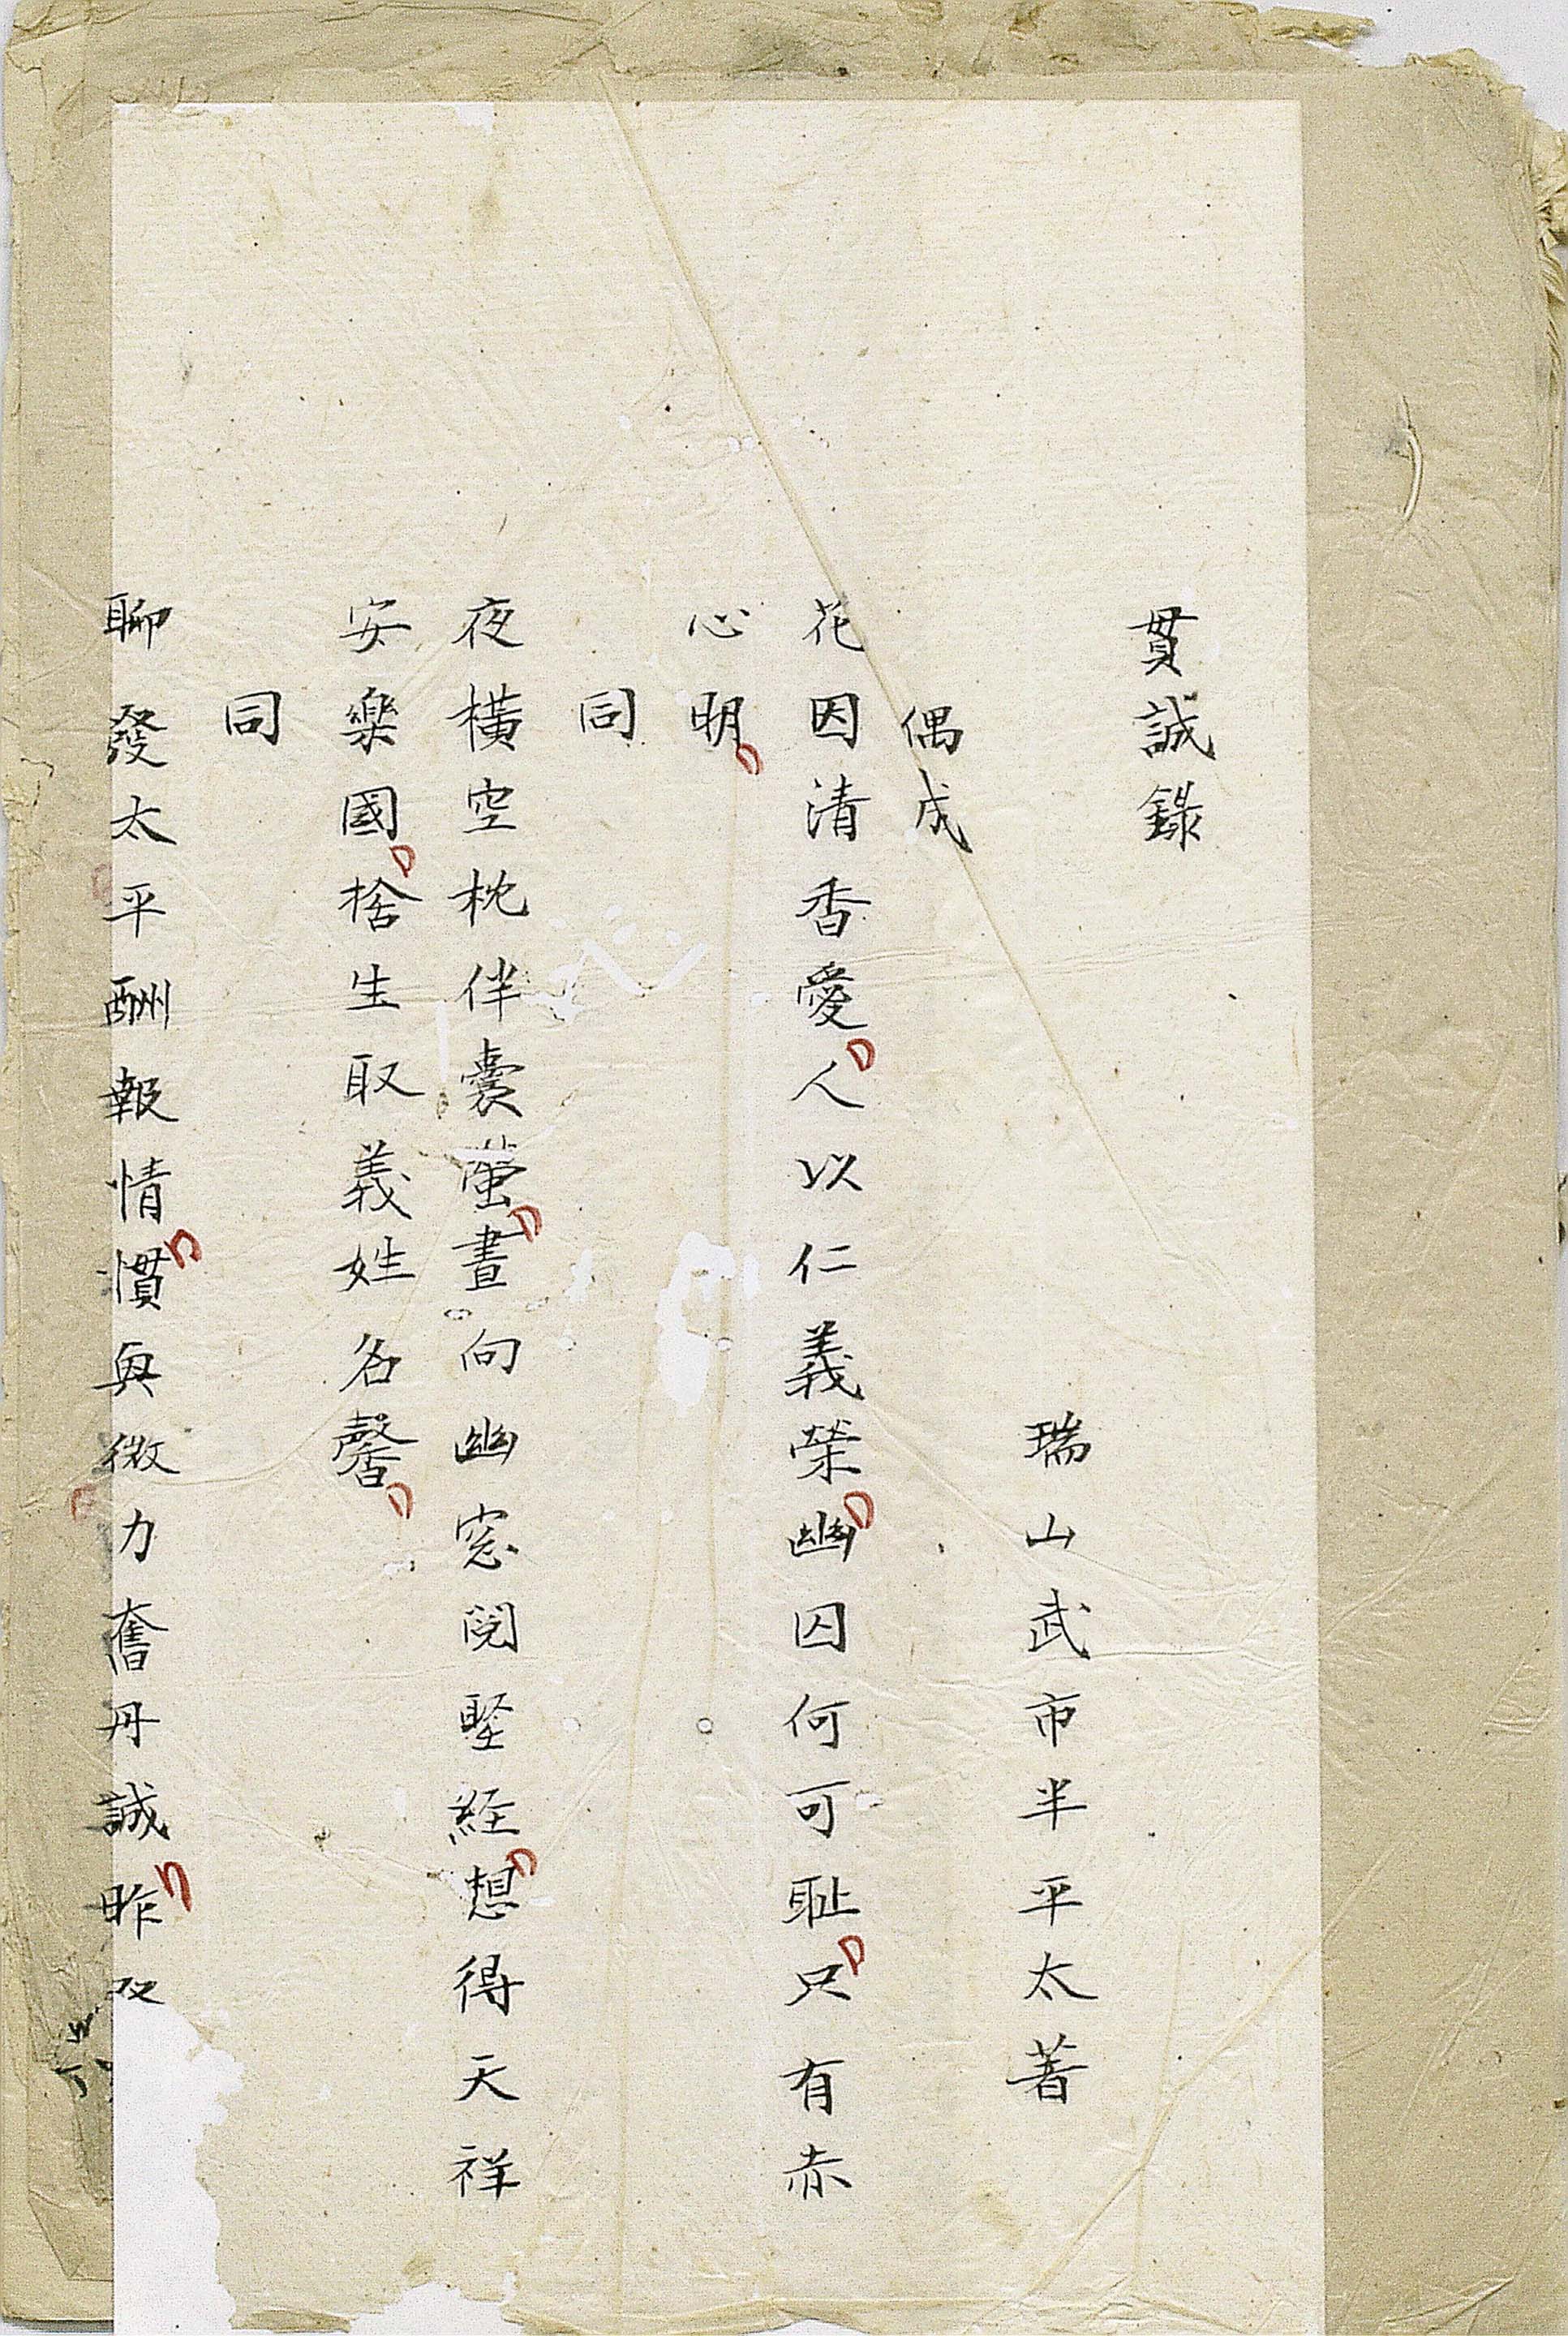 貫誠錄
瑞山武市半平太著
偶成
花因清香愛人以仁義榮幽囚何可耻只有赤
心明
同
夜橫空枕伴囊螢晝向幽窓閲聖経想得天祥
安樂國捨生取義姓名馨
同
聊發太平酬報情慣與微力奮丹誠昨